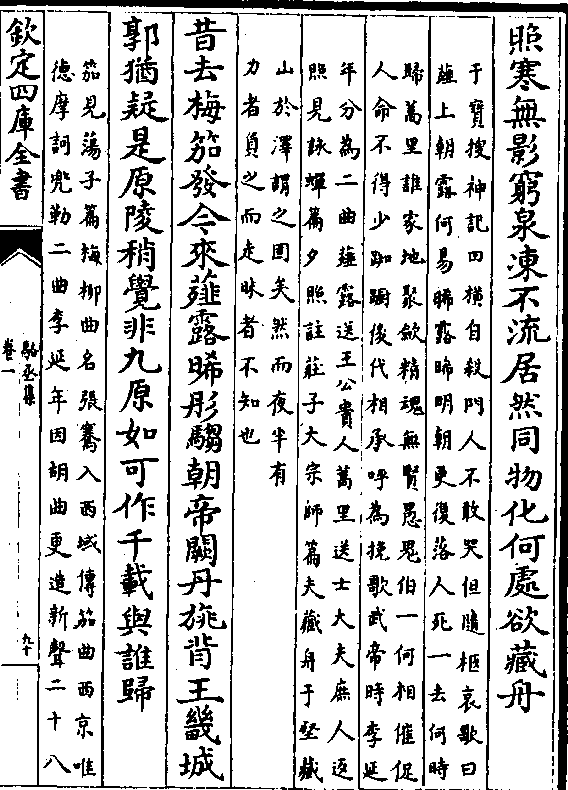 照寒無影窮泉凍不流居然同物化何處欲藏舟
于寶搜神記田横自殺門人不敢哭但隨柩哀歌曰
薤上朝露何易晞露晞明朝更復落人死一去何時
歸蒿里誰家地聚斂精魂無賢愚鬼伯一何相催促
人命不得少踟蹰後代相承呼為挽歌武帝時李延
年分為二曲薤露送王公貴人蒿里送士大夫庶人返
照見詠蟬篇夕照註莊子大宗師篇夫藏舟于壑藏
山於澤謂之固矣然而夜半有
力者負之而走昧者不知也
昔去梅笳發今來薤露晞彤騶朝帝闕丹旐背王畿城
郭猶疑是原陵稍覺非九原如可作千載與誰歸
笳見蕩子篇梅柳曲名張騫入西域傳笳曲西京唯
德摩訶兜勒二曲李延年因胡曲更造新聲二十八
欽定四庫全書
駱丞集
卷一
九十